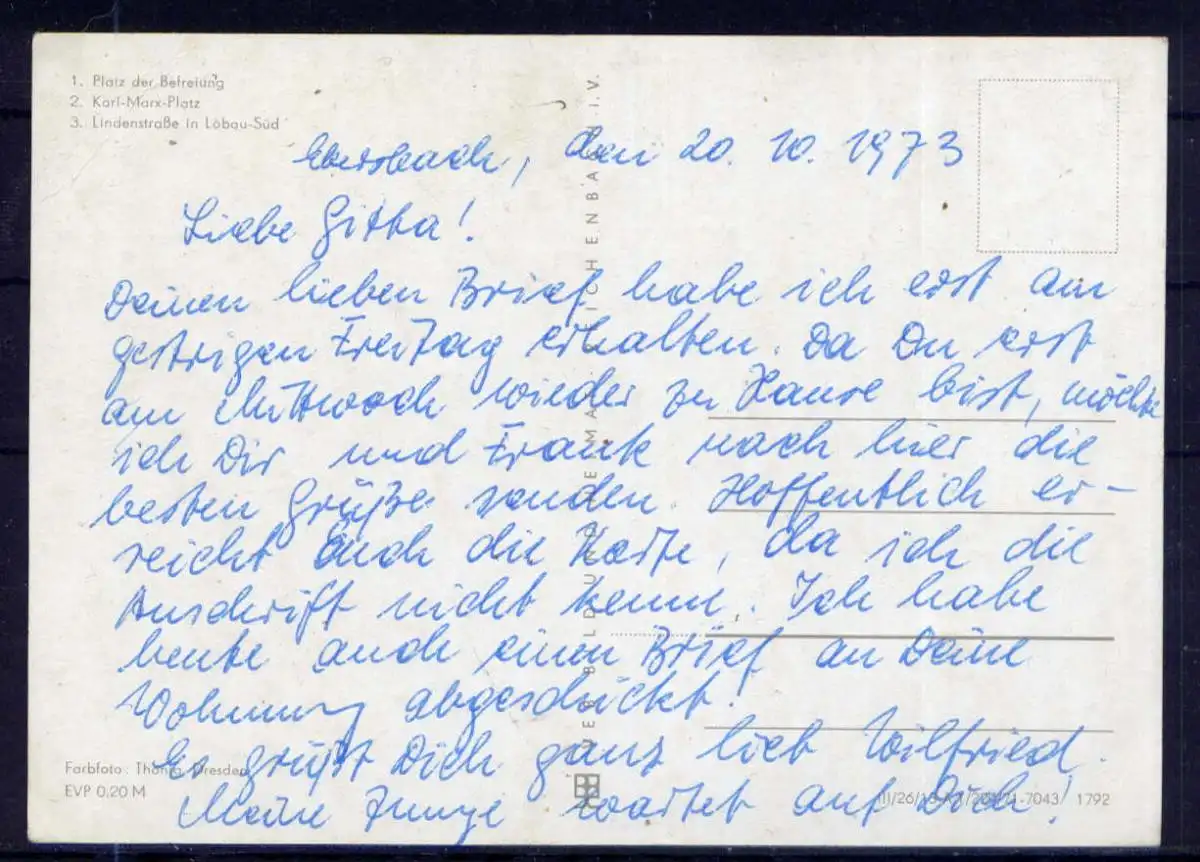 1. Platz der Befreiung
2. Karl-Marx-Platz
3. Lindenstraße in Löbau-Süd
Ebersbach, den 20. 10. 1973
Liebe Gitta!
Deinen lieben Brief habe ich erst am
gestrigen Freitag erhalten. Da Du erst
am Mittwoch wieder zu Hause bist, möchte
ich Dir und Frank nach hier die
besten Grüße senden. Hoffentlich er-
reicht Euch die Karte, da ich die
Anschrift nicht kenne. Ich habe
heute auch einen Brief an Deine
Wohnung abgeschickt!
Es grüßt Dich ganz lieb Wilfried.
Meine Zunge wartet auf Dich!
Farbfoto: Thonig, Dresden
EVP 0,20 M
BILD UND HEIMA REICHENBACH I.V.
7043/ 1792